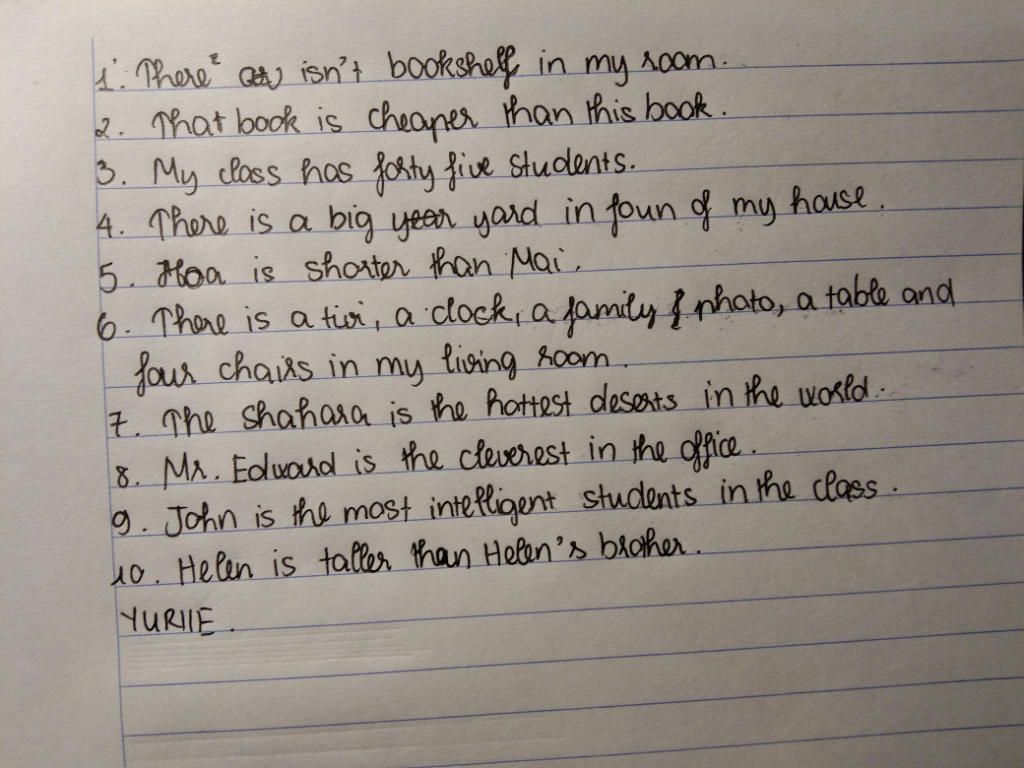 1. There isn't bookshelf in my room.
2. That book is cheaper than this book.
3. My class has forty five students.
4. There is a big year yard in foun of my house.
5. Hoa is shorter than Mai.
6. There is a tivi, a clock, a family photo, a table and
four chairs in my living room.
7. The Shahara is the hottest deserts in the world.
8. Mr. Edward is the cleverest in the office.
9. John is the most intelligent students in the class.
10. Helen is taller than Helen's brother.
YURIIE.